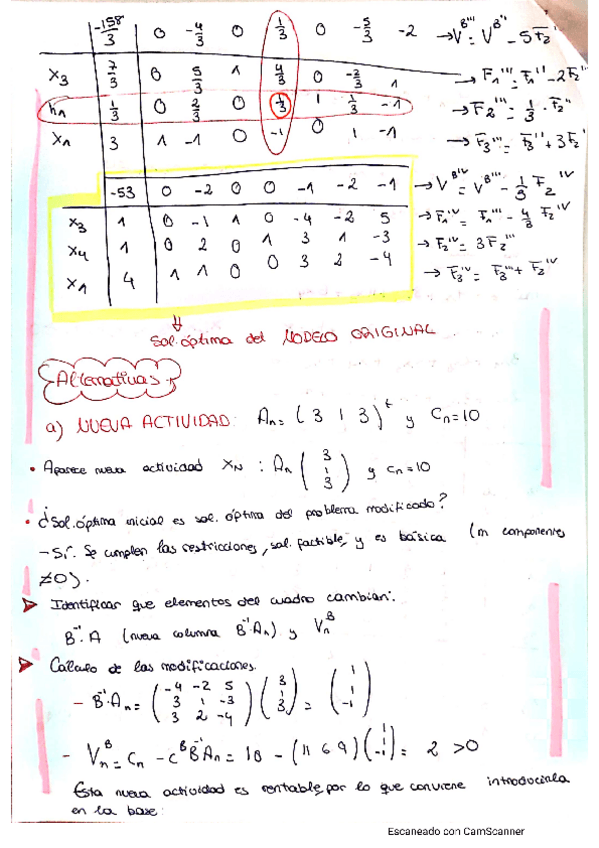 -158/3 0 -4/3 0 1/3 0 -5/3 -2 → V^B''' = V^B'' - 5F̄2'''
x3 7/3 0 5/3 1 4/3 0 -2/3 1 → F̄1''' = F̄1'' - 2F̄2'''
h1 1/3 0 2/3 0 1/3 1 1/3 -1 → F̄2''' = 1/3 · F̄2''
x1 3 1 -1 0 -1 0 1 -1 → F̄3''' = F̄3'' + 3F̄2'''
-53 0 -2 0 0 -1 -2 -1 → V^B^IV = V^B''' - 1/3 F̄2^IV
x3 1 0 -1 1 0 -4 -2 5 → F̄1^IV = F̄1''' - 4/3 F̄2^IV
x4 1 0 2 0 1 3 1 -3 → F̄2^IV = 3F̄2'''
x1 4 1 1 0 0 3 2 -4 → F̄3^IV = F̄3''' + F̄2^IV
Sol. óptima del MODELO ORIGINAL
Alternativas
a) NUEVA ACTIVIDAD: An = (3 1 3)^t y Cn = 10
• Aparece nueva actividad XN : An (3 1 3) y cn = 10
• ¿Sol. óptima inicial es sol. óptima del problema modificado?
- Sí. Se cumplen las restricciones, sol. factible, y es básica (m componentes
≠0).
➤ Identificar que elementos del cuadro cambian:
B^-1 · A (nueva columna B^-1 An) y Vn^B
➤ Cálculo de las modificaciones.
- B^-1 · An = (-4 -2 5 / 3 1 -3 / 3 2 -4) (3 1 3) = (1 1 -1)
- Vn^B = Cn - c^B B^-1 An = 10 - (11 6 9) (1 1 -1) = 2 > 0
Esta nueva actividad es rentable por lo que conviene introducirla
en la base:
Escaneado con CamScanner